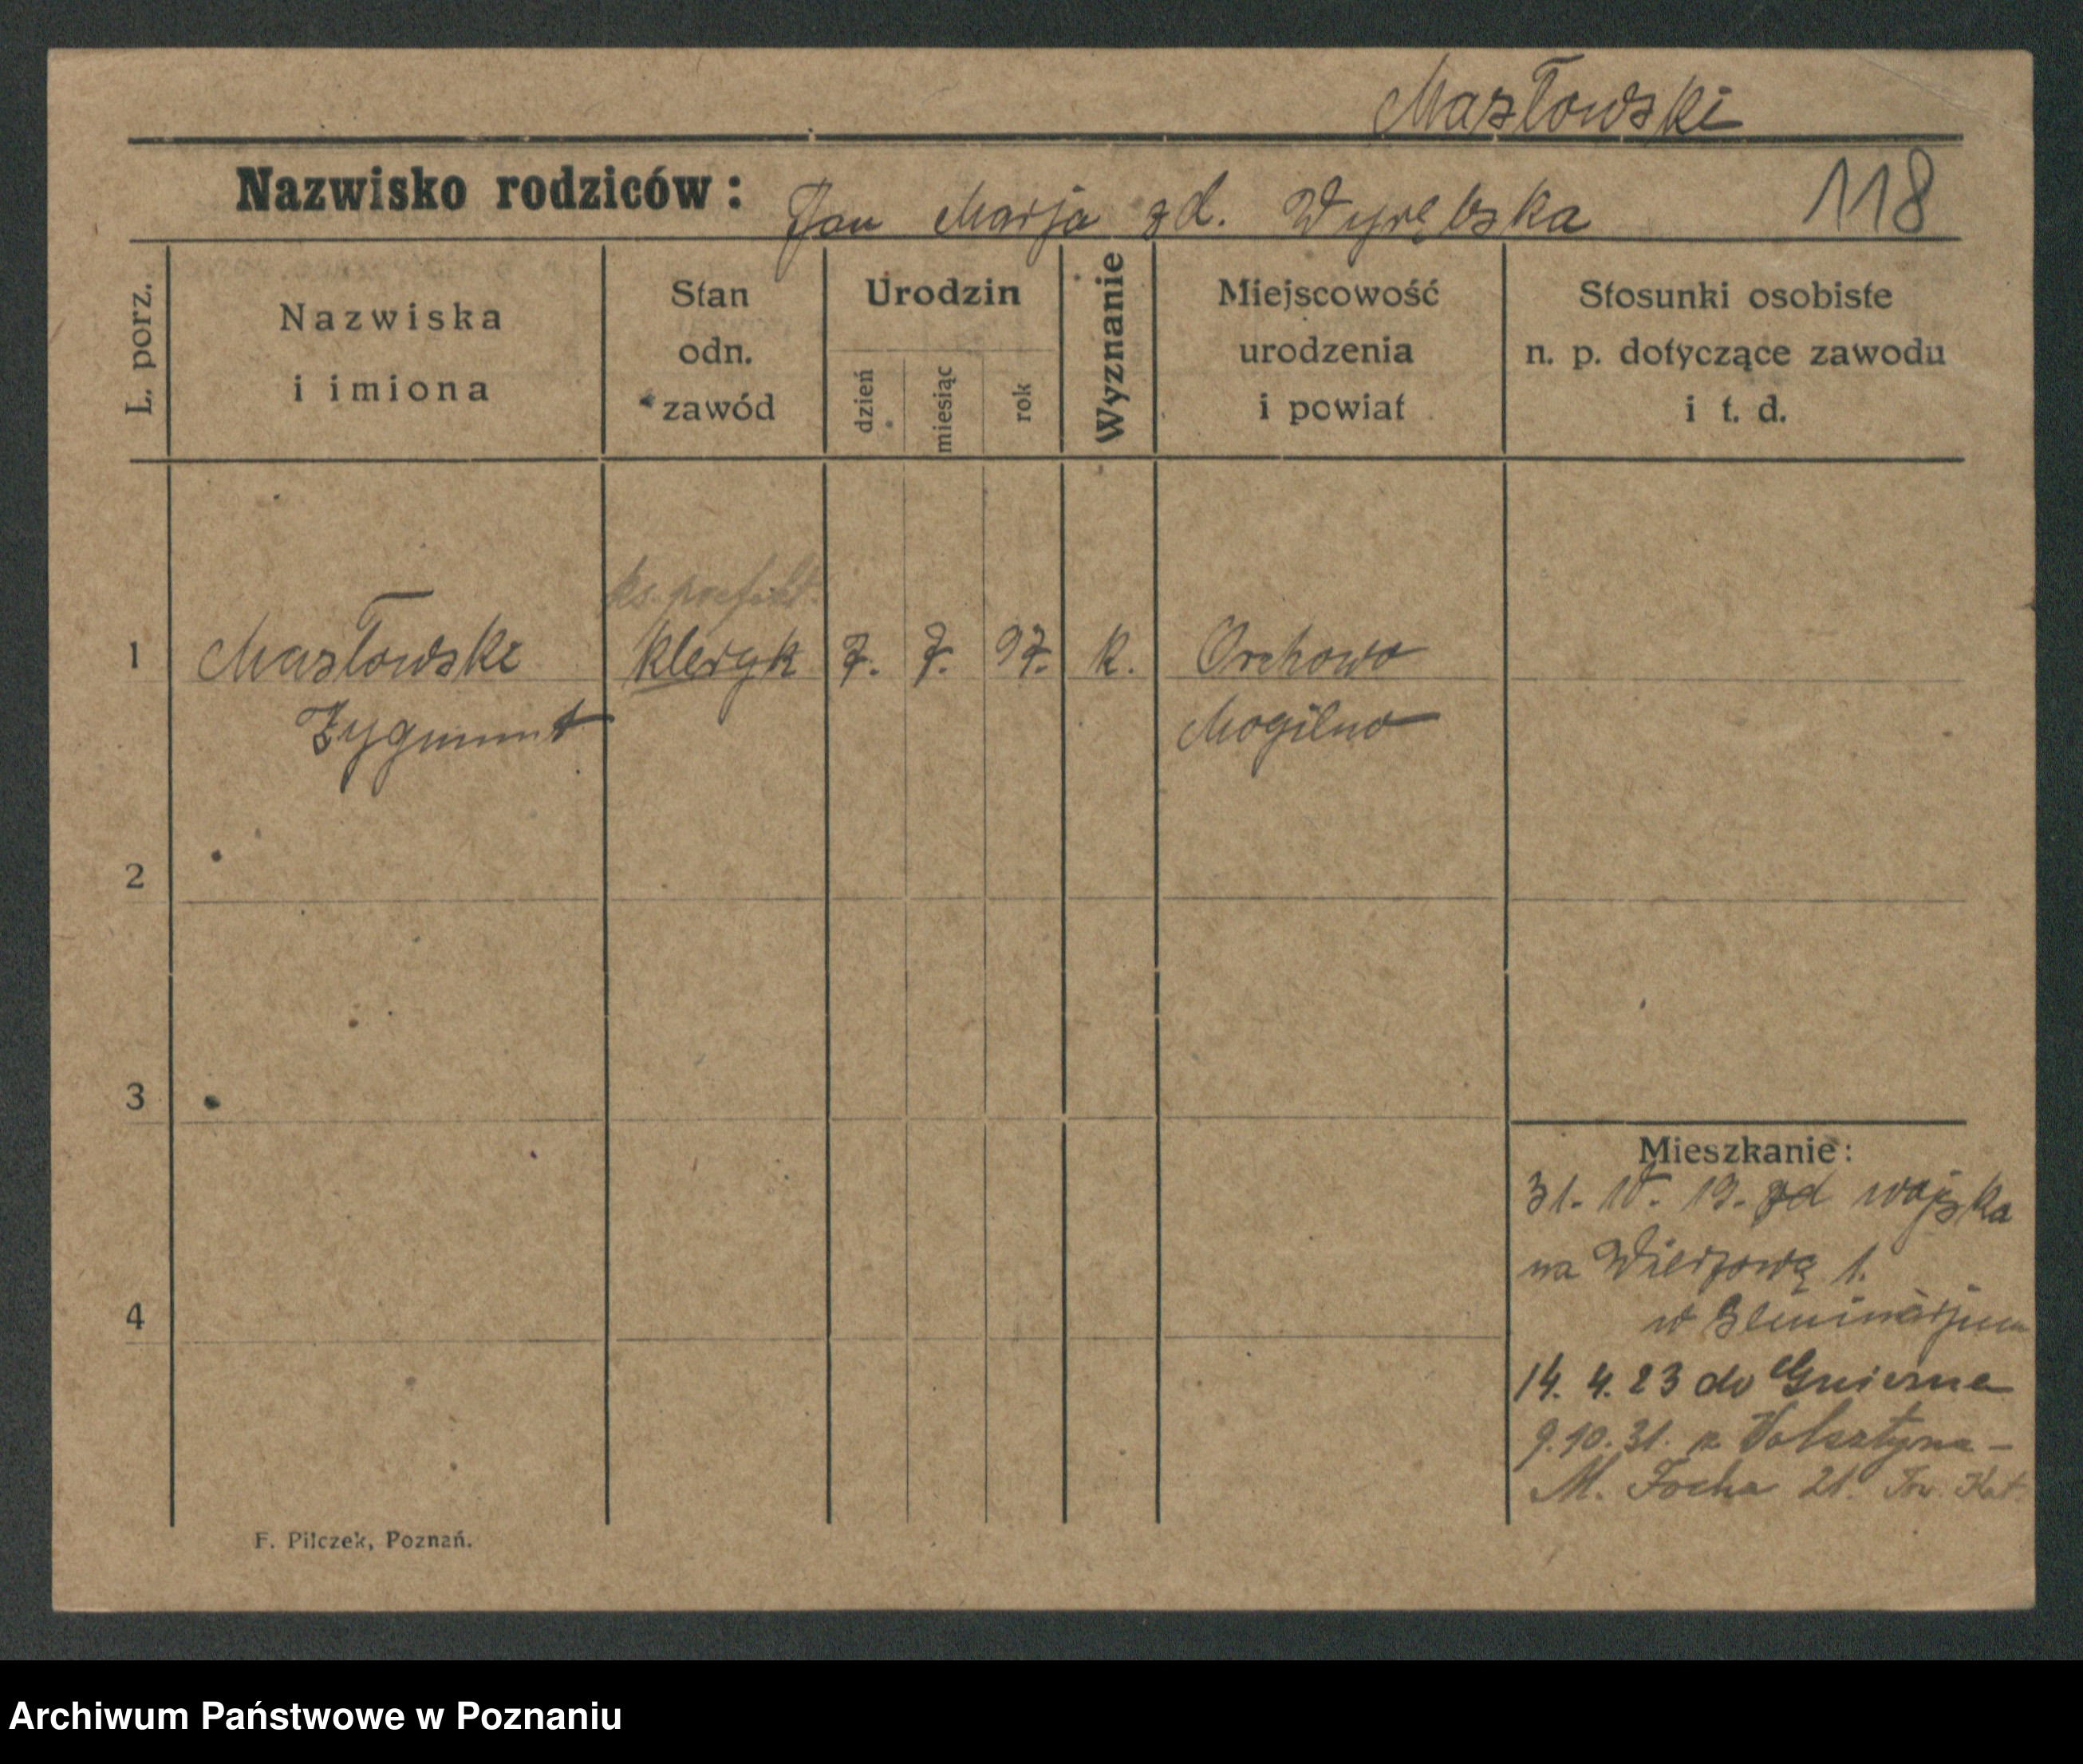 Masłowski
Nazwisko rodziców: Jan Marja zd. Wyrębska 118
L. porz.
Nazwiska
i imiona
Stan
odn.
zawód
Urodzin
dzień
miesiąc
rok
Wyznanie
Miejscowość
urodzenia
i powiat
Stosunki osobiste
n. p. dotyczące zawodu
i t. d.
ks. prefekt.
1 Masłowski kleryk 7. 7. 97. k. Orchowo
Zygmunt Mogilno
2
3
4
Mieszkanie:
31. 10. 19. od wojska
na Wieżową 1.
w Seminarjum
14. 4. 23 do Gniezna
9.10.31. z Wolsztyna -
M. Focha 21. Kat.
F. Pilczek, Poznań.
Archiwum Państwowe w Poznaniu